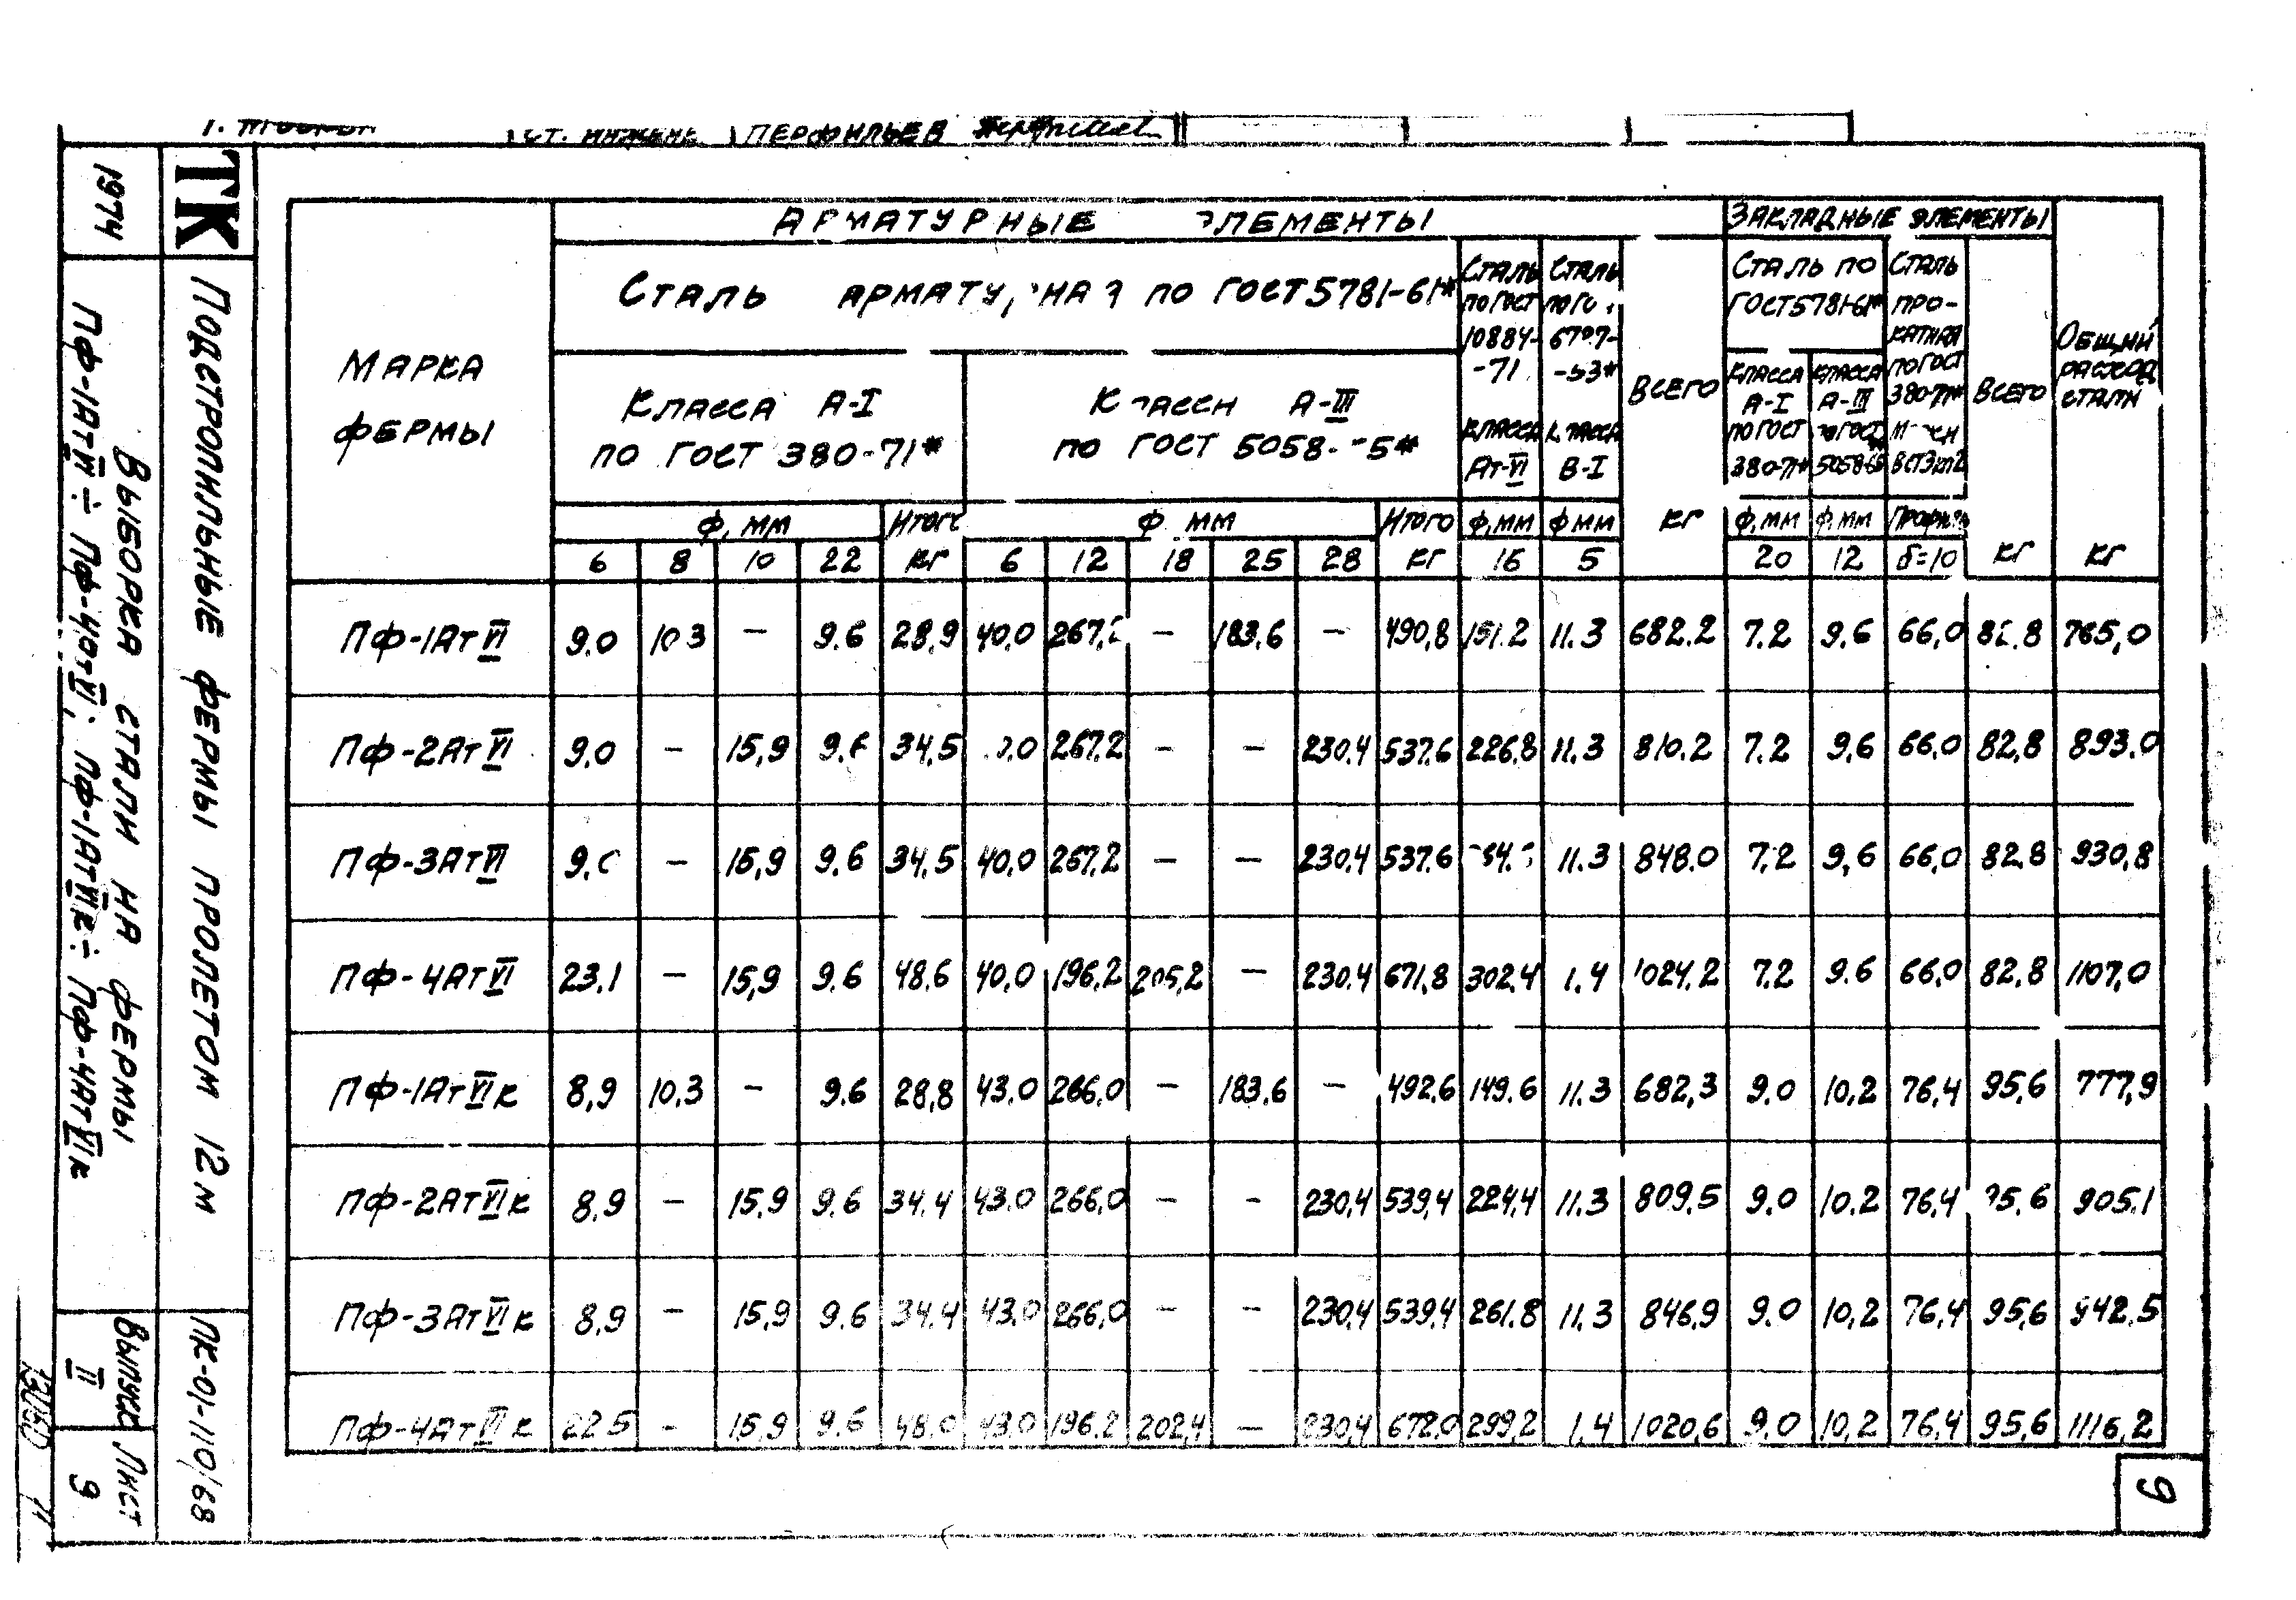 СТ. ИНЖЕНЕ ПЕРФИЛЬЕВ
ТК
1974
Подстропильные фермы пролетом 12 м
Выборка стали на фермы
ПФ-1АтVI ÷ ПФ-4АтVI; ПФ-1АтVIк ÷ ПФ-4АтVIк
ПК-01-110/68
Выпуск II
Лист 9
Марка фермы
Арматурные элементы
Закладные элементы
Общий расход стали
кг
Сталь по ГОСТ 5781-61*
Класса А-I по ГОСТ 380-71*
Класса А-III по ГОСТ
Сталь по ГОСТ 10884-71 Класса Ат-VI
Сталь
В-I
Всего
кг
Сталь по ГОСТ 5781-61*
Класса А-I по ГОСТ 380-71*
Класса А-III 5058-65
Сталь прокатная по ГОСТ 380-71*
Всего
кг
Ф, мм Итого Ф мм Итого Ф, мм Ф мм Ф, мм Ф, мм Профиль
6 8 10 22 кг 6 12 18 25 28 кг 16 5 20 12 δ=10
ПФ-1АтVI 9.0 10 3 — 9.6 28,9 40,0 — 183.6 — 490,8 151.2 11.3 682.2 7.2 9.6 66,0 765,0
ПФ-2АтVI 9.0 — 15,9 34,5 267.2 — — 230.4 537.6 226.8 11.3 810.2 7.2 9,6 66.0 82,8 893.0
ПФ-3АтVI — 15,9 9.6 34,5 40,0 267.2 — — 230.4 537.6 11.3 848.0 7.2 9,6 66,0 82.8 930,8
ПФ-4АтVI 23.1 — 15,9 9.6 48.6 40,0 196.2 205,2 — 230.4 671,8 302,4 1.4 1024.2 7.2 9.6 66,0 82,8 1107,0
ПФ-1АтVIк 8,9 10,3 — 9.6 28,8 43.0 266.0 — 183.6 — 492.6 149.6 11.3 682,3 9.0 10,2 76,4 95,6 777,9
ПФ-2АтVIк 8.9 — 15,9 9.6 34.4 43.0 266,0 — - 230,4 539,4 224,4 11.3 809.5 9.0 10.2 76,4 905.1
ПФ-3АтVIк 8,9 — 15,9 9.6 34.4 43.0 266,0 — — 230,4 539,4 261.8 11.3 846,9 9.0 10,2 76,4 95,6 942.5
ПФ-4АтVIк 22 5 — 15,9 9.6 48.0 43.0 196.2 202,4 — 230,4 672.0 299,2 1.4 1020,6 9.0 10,2 76,4 95,6 1116,2
9